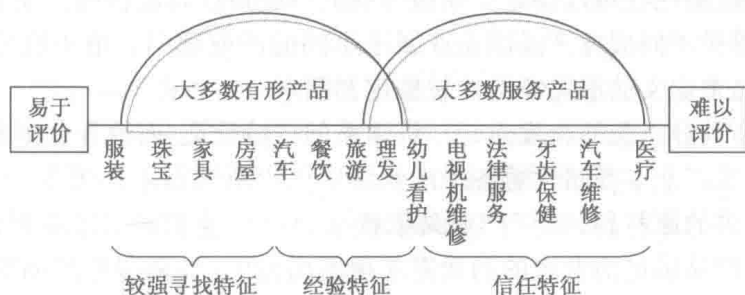 大多数有形产品 大多数服务产品
易于
评价
难以
评价
服装
珠宝
家具
房屋
汽车
餐饮
旅游
理发
幼儿看护
电视机维修
法律服务
牙齿保健
汽车维修
医疗
较强寻找特征 经验特征 信任特征